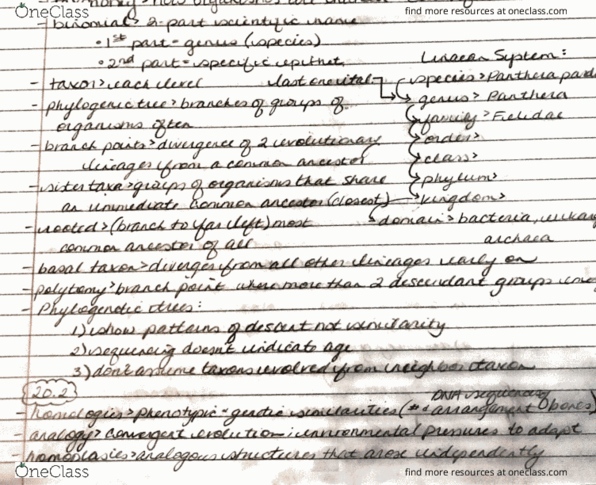 OneClass
find more resources at oneclass.com
- binomial > 2-part scientific name
• 1st part = genus (species)
• 2nd part = specific epithet
Linnaean System:
- taxon > each level
species > Panthera pard
- phylogenic tree > branches of groups of
genus > Panthera
organisms often
family > Felidae
- branch points > divergence of 2 evolutionary
order >
lineages from a common ancestor
class >
- sister taxa > groups of organisms that share
phylum >
an immediate common ancestor (closest)
kingdom >
- rooted > (branch to far left) most
domain > bacteria, eukary
common ancestor of all
archaea
- basal taxon > diverges from all other lineages early on
- polytomy > branch point where more than 2 descendant groups
- Phylogenetic trees:
1) show patterns of descent not similarity
2) sequencing doesn't indicate age
3) don't assume taxons evolved from neighbor taxon
20.2
DNA sequences
- homologies > phenotypic + genetic similarities ( arrangement of bones)
- analogy > convergent evolution; environmental pressures to adapt
- homoplasies > analogous structures that arose independently
OneClass
find more resources at oneclass.com